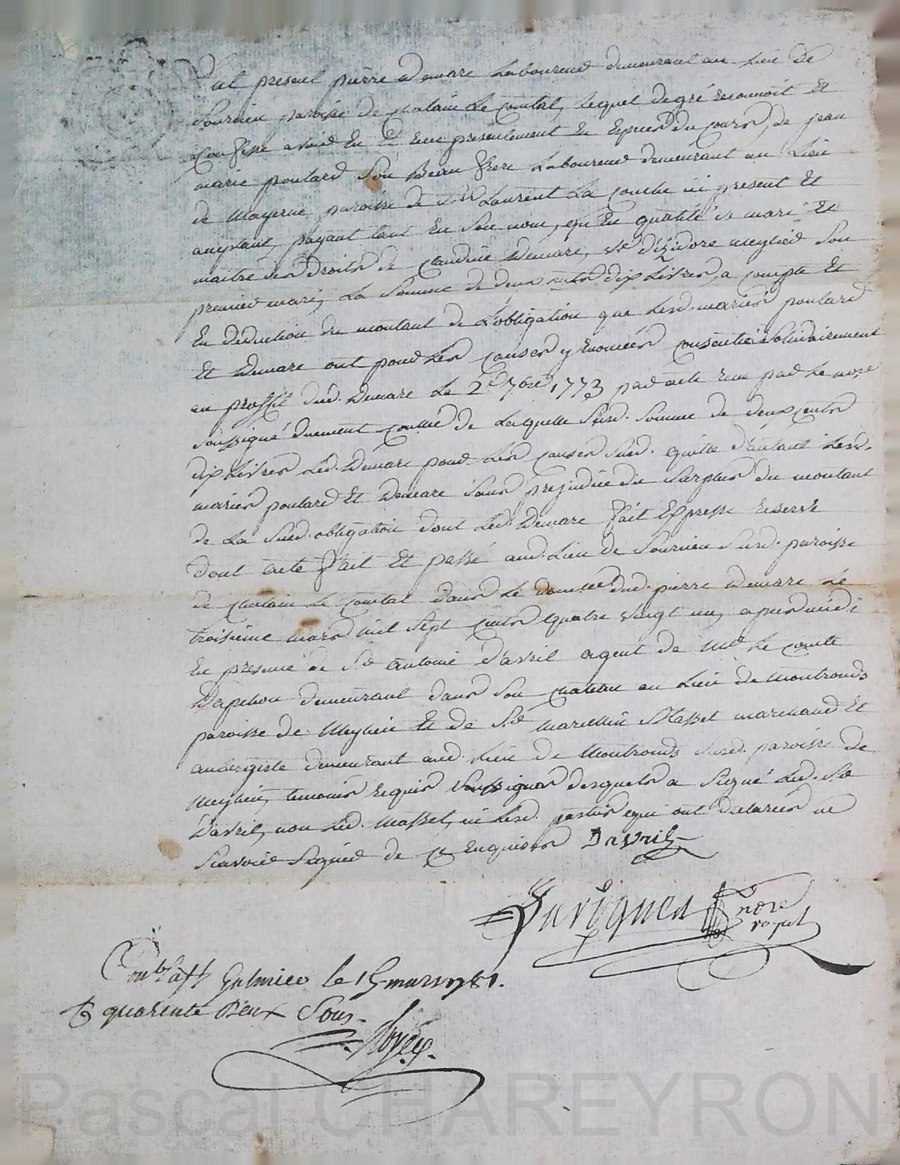 fut present pierre Demare Laboureur demeurant au Lieu de
Sourcieu paroisse de Chalain Le Comtal, Lequel de gré reconnoit Et
Confesse avoir Eu Et receu presentement En Espèces du Cours, de jean
marie poulard Son Beau frere Laboureur demeurant au Lieu
de Mayerne paroisse de St Laurent La Conche ici present Et
aceptant, payant tant En Son nom, qu'En qualité de mari Et
maitre des Droits de Claudine Demare, Ve d'izidore meylied Son
premier mari, La Somme de deux cents dix Livres, a compte Et
En deduction du montant de L'obligation que Lesd. mariés poulard
Et Demare ont pour Les Causes y Enoncées Consentie Solidairement
au proffit dud. Demare Le 2e 7bre 1773 par acte receu par Le nore
Soussigné duement Contlé de Laquelle Susd. Somme de deux Cents
dix Livres Led. Demare pour Les Causes Susd. quitte d'autant Lesd.
mariés poulard Et Demare Sans prejudice du Surplus du montant
de La Susd. obligation dont Led. Demare fait Expresse reserve
dont acte fait Et passé aud. Lieu de Sourcieu Susd. paroisse
de Chalain Le Comtal dans Le domicile dud. pierre Demare Le
troisieme mars mil Sept Cents quatre vingt un, apres midi
En presence de Sr Antoine d'avril agent de Mr Le Comte
Dapchou demeurant dans Son Chateau au Lieu de Montronds
paroisse de Meylieu Et de Sr Marcellin Masset marchand Et
aubergiste demeurant aud. Lieu de Montronds Susd. paroisse de
Meylieu, temoins requis Soussignés desquels a Signé Led. Sr
Davril, non Led. Masset, ni Lesd. parties qui ont déclarées ne
Scavoir Signer de ce Enquises Davril
nore
royal
Conlé a St Galmier le 15 mars 1781.
R quarente Deux Sous